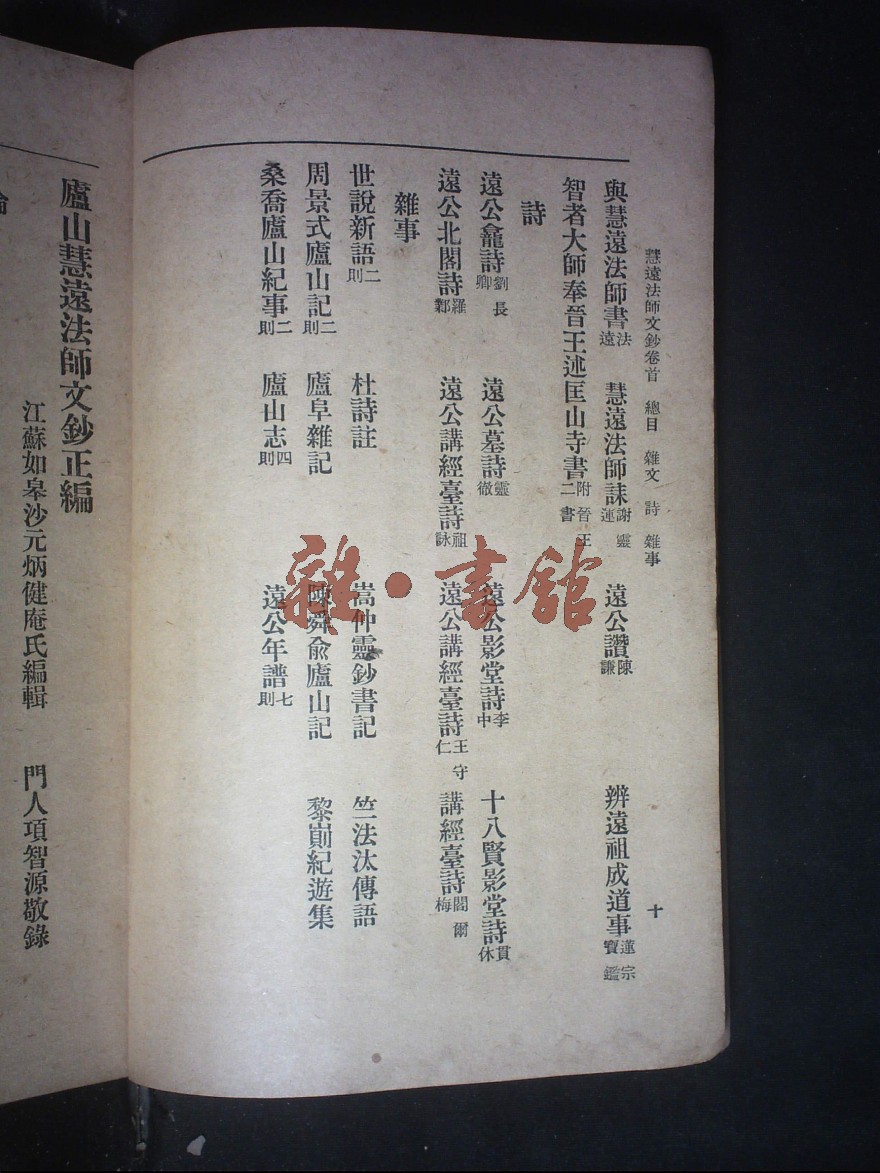 慧遠法師文鈔卷首 總目 雜文 詩 雜事 十
與慧遠法師書 法遠 慧遠法師誄 謝靈運 遠公讚 陳謙 辨遠祖成道事 蓮宗寶鑑
智者大師奉晉王述匡山寺書 附晉王二書
詩
遠公龕詩 劉長卿 遠公墓詩 靈徹 遠公影堂詩 李中 十八賢影堂詩 貫休
遠公北閣詩 羅鄴 遠公講經臺詩 祖詠 遠公講經臺詩 王守仁 講經臺詩 閻爾梅
雜事
世說新語 二則 杜詩註 嵩仲靈鈔書記 竺法汰傳語
周景式廬山記 二則 廬阜雜記 陳舜俞廬山記 黎崱紀遊集
桑喬廬山紀事 二則 廬山志 四則 遠公年譜 七則
廬山慧遠法師文鈔正編
江蘇如皋沙元炳健庵氏編輯 門人項智源敬錄
雜·書館